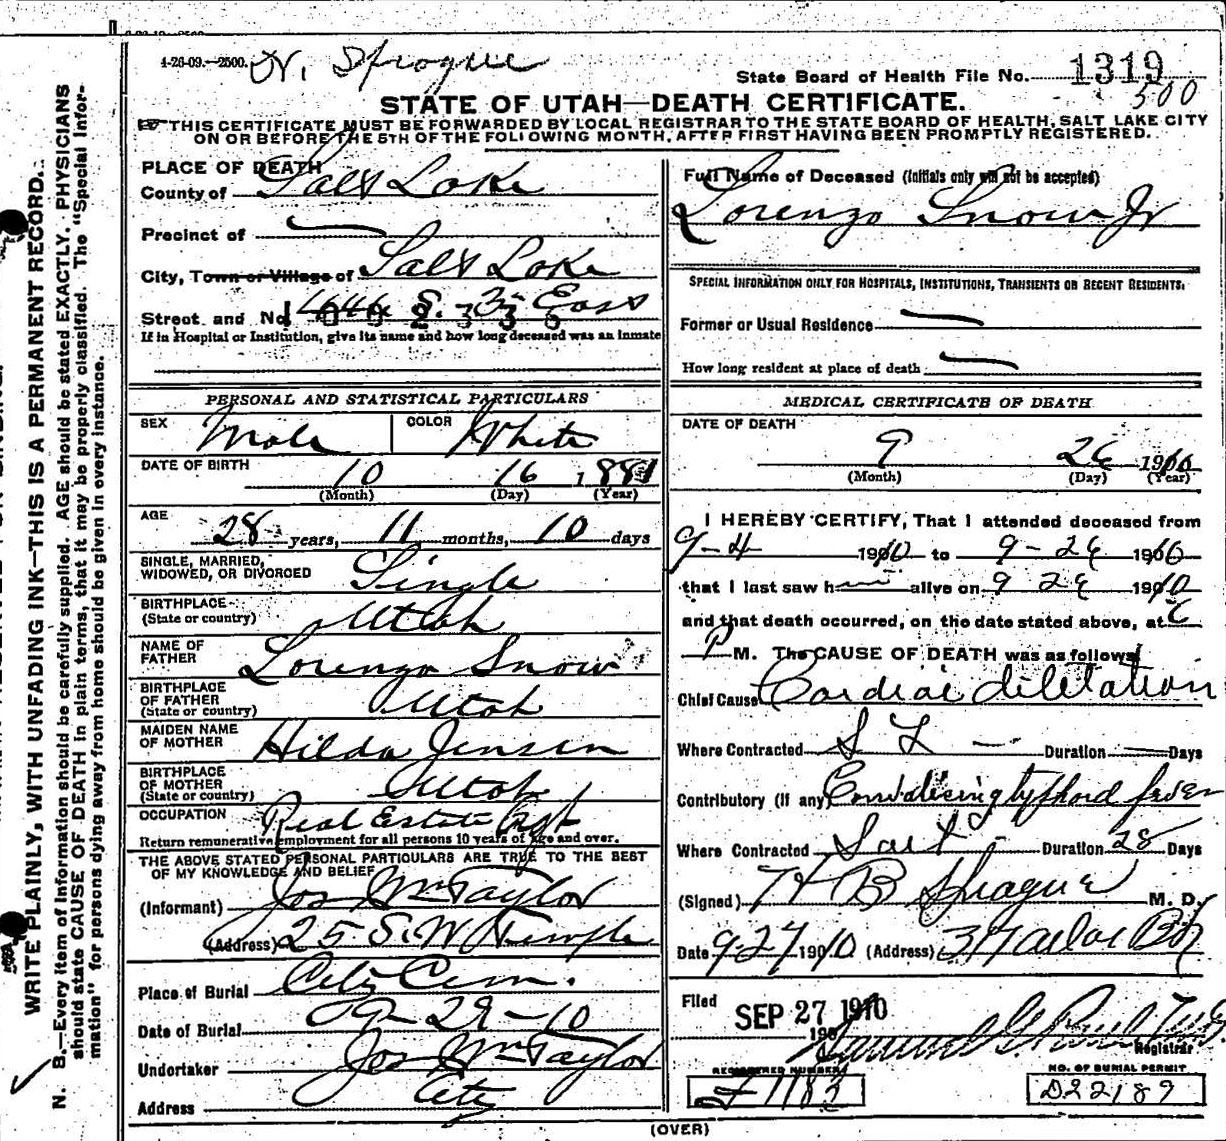 4-26-09.—2500.
Sprague
State Board of Health File No. 1319
500
STATE OF UTAH—DEATH CERTIFICATE.
THIS CERTIFICATE MUST BE FORWARDED BY LOCAL REGISTRAR TO THE STATE BOARD OF HEALTH, SALT LAKE CITY
ON OR BEFORE THE 5TH OF THE FOLLOWING MONTH, AFTER FIRST HAVING BEEN PROMPTLY REGISTERED.
WRITE PLAINLY, WITH UNFADING INK—THIS IS A PERMANENT RECORD.
N. B.—Every item of information should be carefully supplied. AGE should be stated EXACTLY. PHYSICIANS
should state CAUSE OF DEATH in plain terms, that it may be properly classified. The "Special Infor-
mation" for persons dying away from home should be given in every instance.
PLACE OF DEATH
County of Salt Lake
Precinct of
City, Town or Village of Salt Lake
Street and No. S. 3 East
If in Hospital or Institution, give its name and how long deceased was an inmate
PERSONAL AND STATISTICAL PARTICULARS
SEX Male COLOR White
DATE OF BIRTH 10 16 1881
(Month) (Day) (Year)
AGE 28 years, 11 months, 10 days
SINGLE, MARRIED,
WIDOWED, OR DIVORCED Single
BIRTHPLACE
(State or country) Utah
NAME OF
FATHER Lorenzo Snow
BIRTHPLACE
OF FATHER
(State or country) Utah
MAIDEN NAME
OF MOTHER Hilda Jensen
BIRTHPLACE
OF MOTHER
(State or country) Utah
OCCUPATION Real Estate Agt
Return remunerative employment for all persons 10 years of age and over.
THE ABOVE STATED PERSONAL PARTICULARS ARE TRUE TO THE BEST
OF MY KNOWLEDGE AND BELIEF
(Informant) Jos Wm Taylor
(Address) 25 S. W Temple
Place of Burial City Cem.
Date of Burial 9-29-10
Undertaker Jos Wm Taylor
Address City
Full Name of Deceased (Initials only will not be accepted)
Lorenzo Snow Jr
SPECIAL INFORMATION ONLY FOR HOSPITALS, INSTITUTIONS, TRANSIENTS OR RECENT RESIDENTS.
Former or Usual Residence
How long resident at place of death
MEDICAL CERTIFICATE OF DEATH
DATE OF DEATH
9 26 1910
(Month) (Day) (Year)
I HEREBY CERTIFY, That I attended deceased from
9-4 1910 to 9-26 1910
that I last saw h alive on 9 26 1910
and that death occurred, on the date stated above, at 6
P M. The CAUSE OF DEATH was as follows
Chief Cause Cardiac diletation
Where Contracted S L Duration Days
Contributory (if any) typhoid fever
Where Contracted Salt Duration 28 Days
(Signed) H B Sprague M. D.
Date 9-27 1910 (Address)
Filed SEP 27 1910
Registrar
REGISTERED NUMBER
1183
NO. OF BURIAL PERMIT
D22189
(OVER)